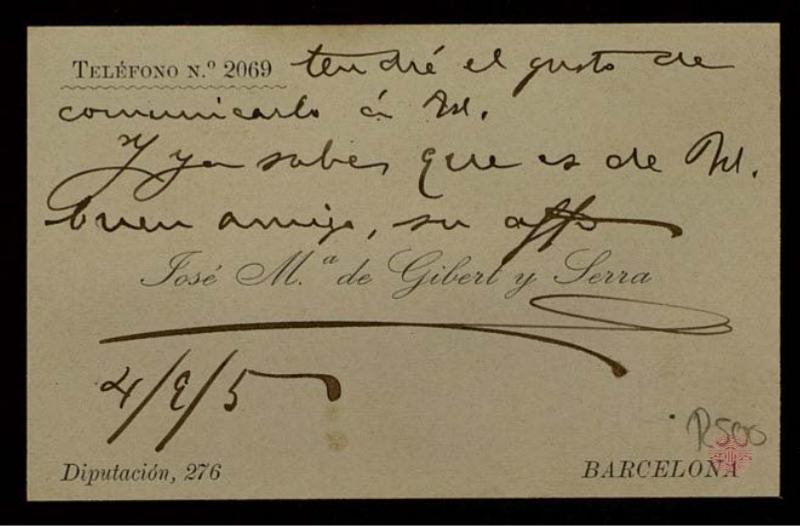 TELÉFONO N.º 2069 tendré el gusto de
comunicarlo á Vd.
Y ya sabe, que es de Vd.
buen amigo, su affo
José M.ª de Gibert y Serra
4/2/5
R500
Diputación, 276 BARCELONA